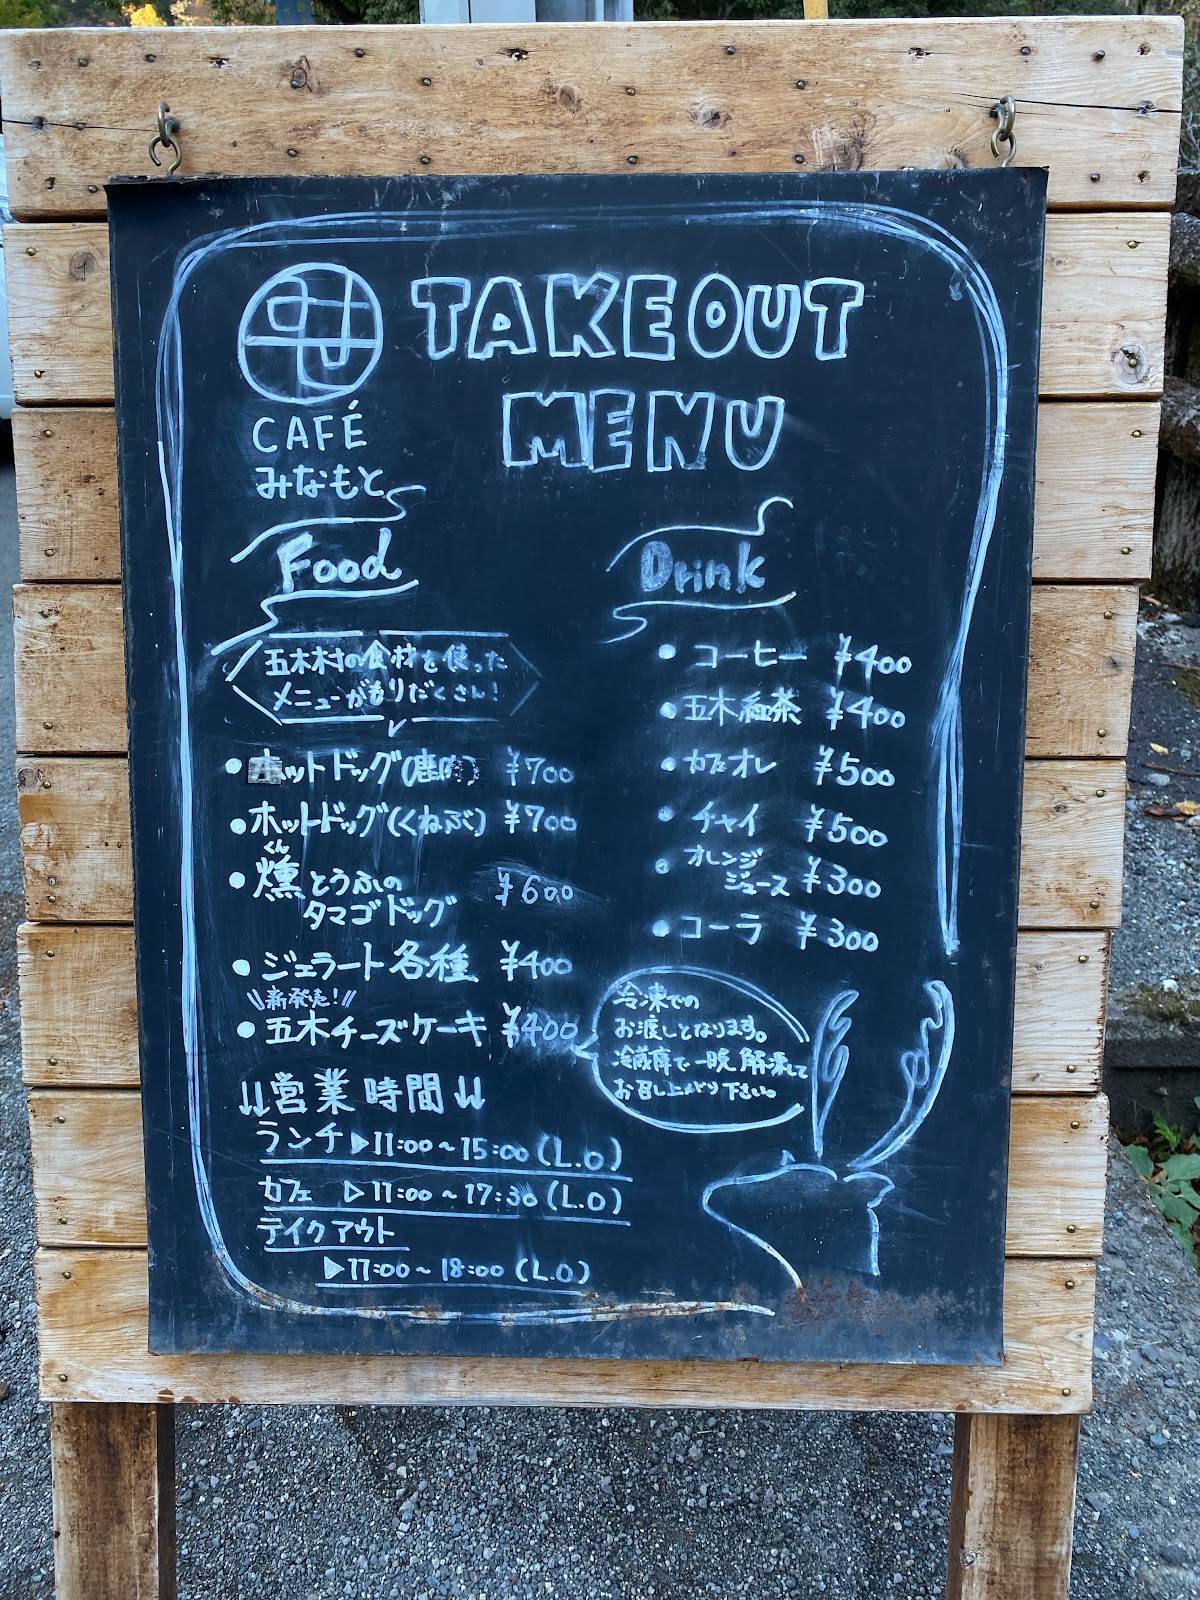 TAKEOUT
MENU
CAFÉ
みなもと
Food
五木村の食材を使った
メニューがもりだくさん!
・ホットドッグ(鹿肉) ¥700
・ホットドッグ(くねぶ) ¥700
くん
・燻とうふの
タマゴドッグ ¥600
・ジェラート各種 ¥400
\\新発売!//
・五木チーズケーキ ¥400
冷凍での
お渡しとなります。
冷蔵庫で一晩解凍して
お召し上がり下さい。
↓↓営業時間↓↓
ランチ▶11:00~15:00(L.O)
カフェ ▷11:00~17:30(L.O)
テイクアウト
▶11:00~18:00(L.O.)
Drink
・コーヒー ¥400
・五木紅茶 ¥400
・カフェオレ ¥500
・チャイ ¥500
・オレンジ
ジュース ¥300
・コーラ ¥300